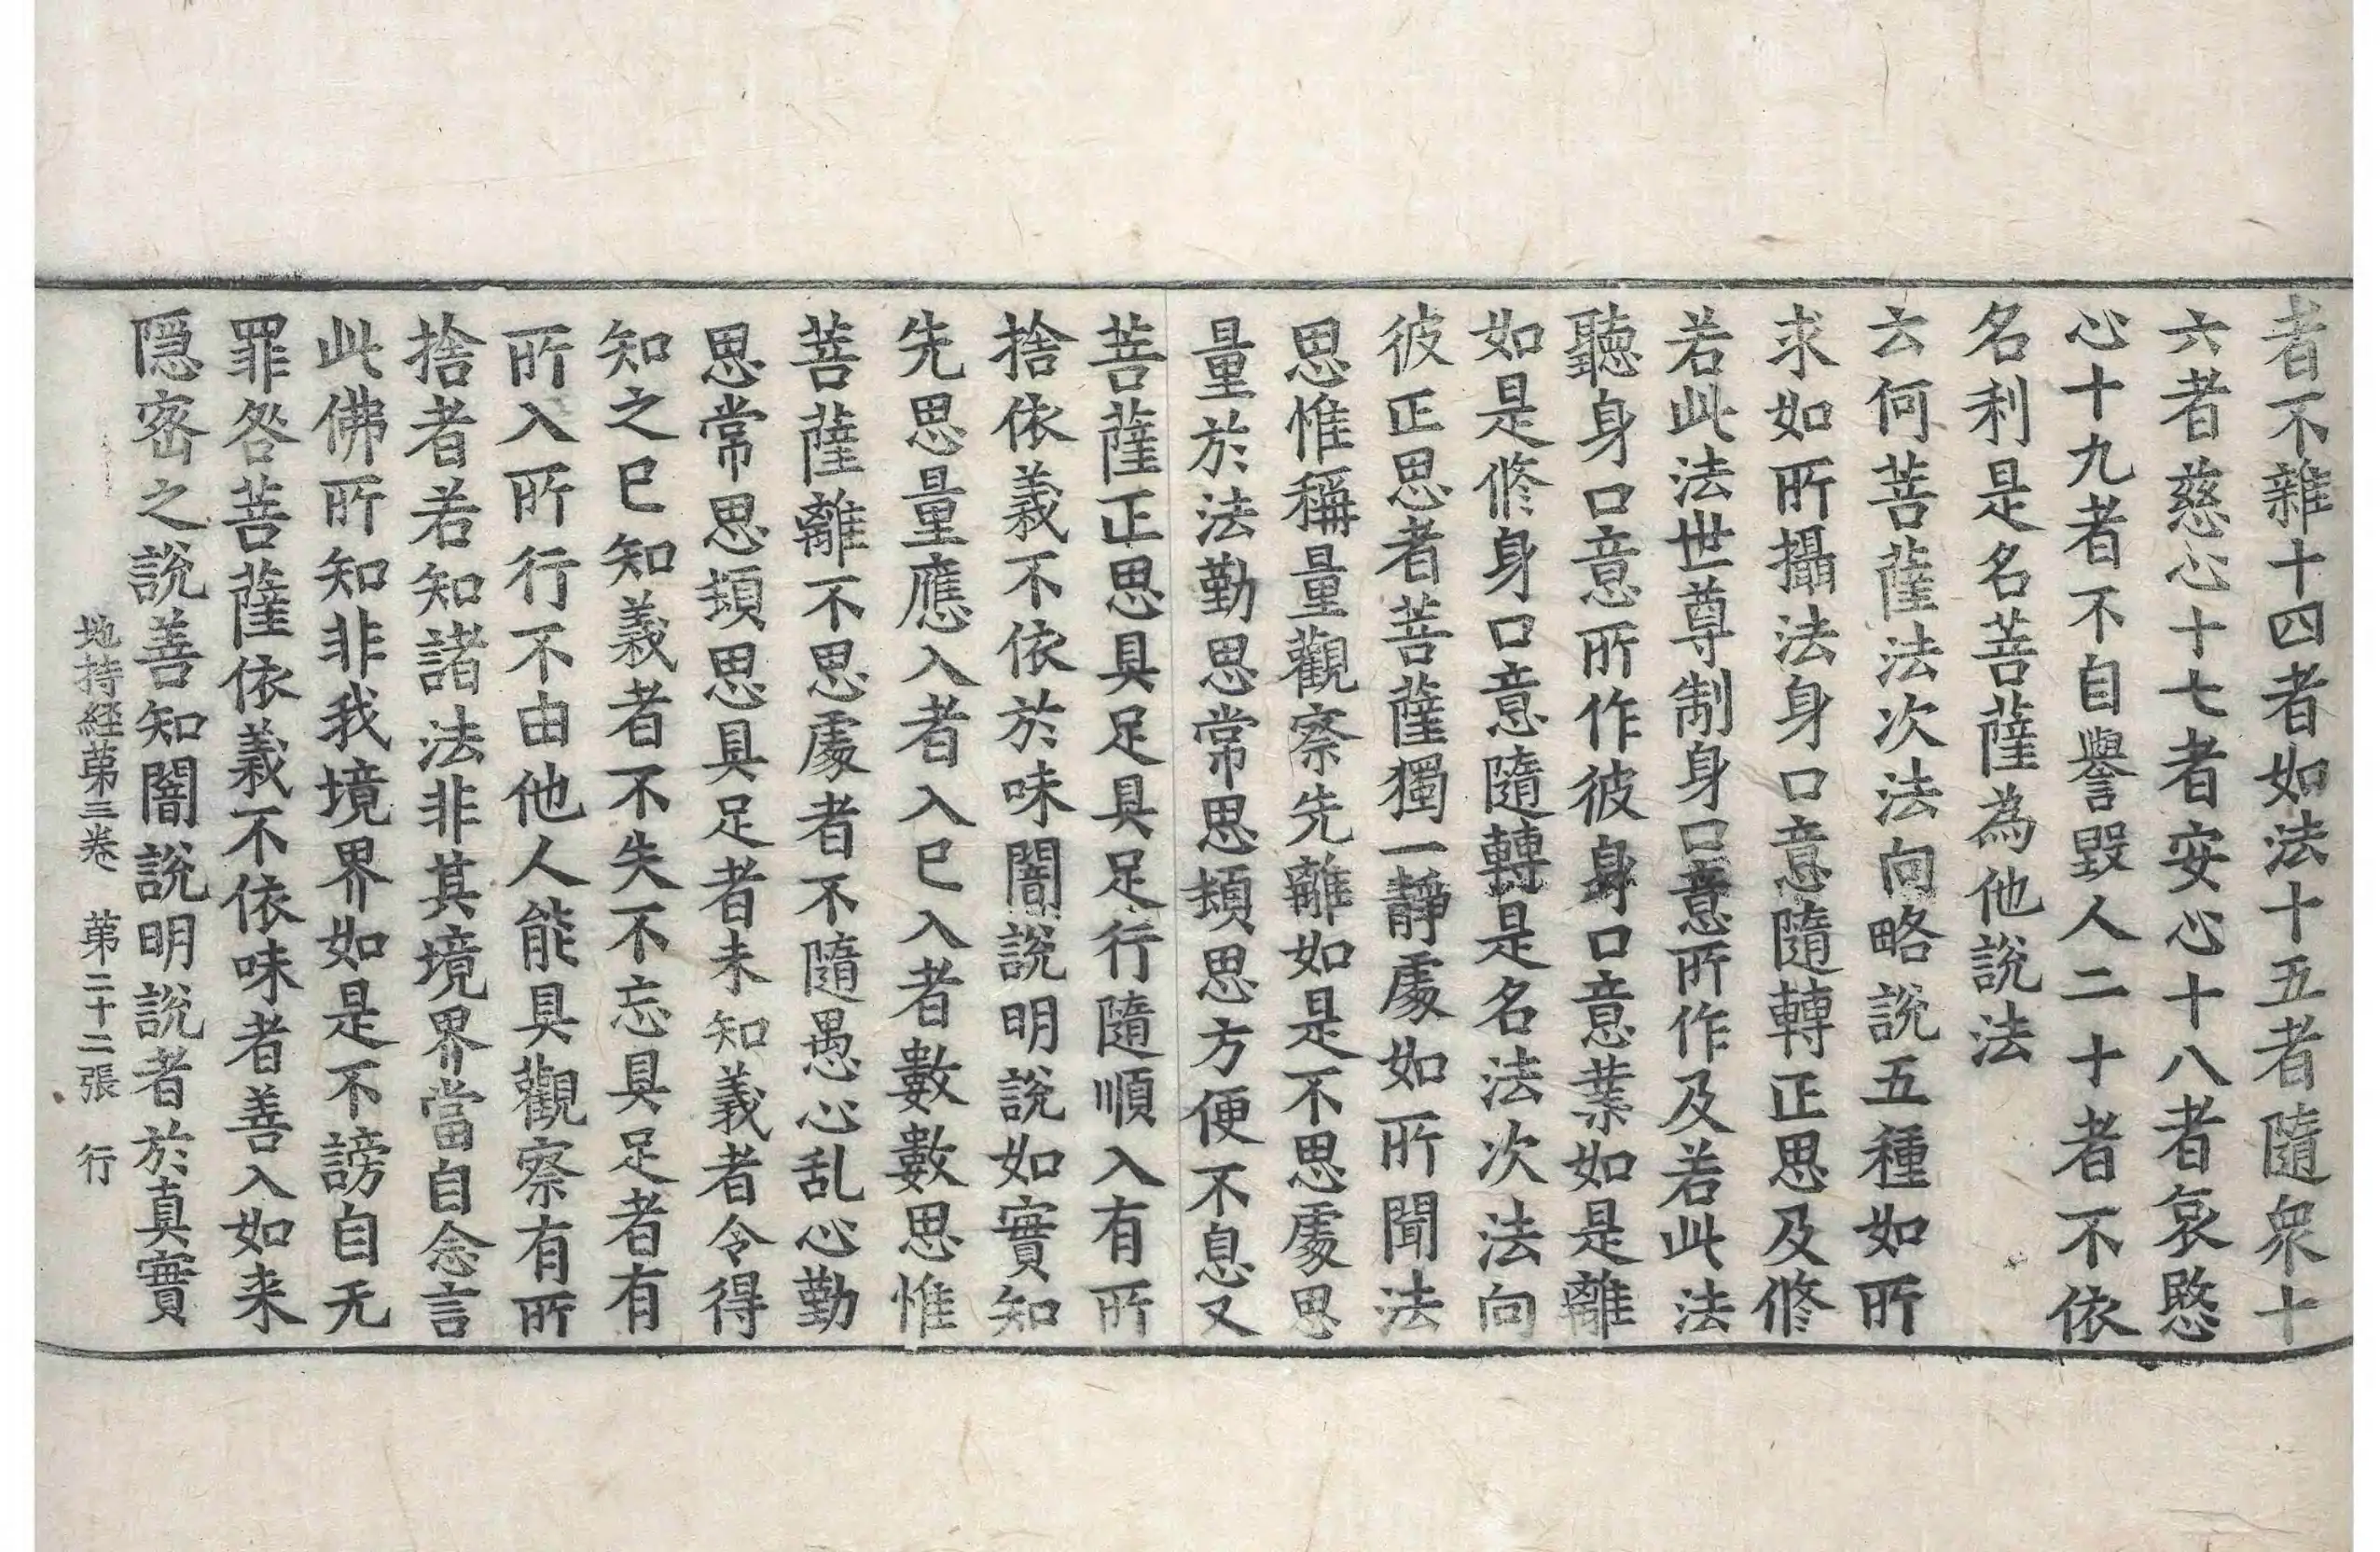 者不雜十四者如法十五者隨衆十
六者慈心十七者安心十八者哀愍
心十九者不自譽毀人二十者不依
名利是名菩薩為他說法
云何菩薩法次法向略說五種如所
求如所攝法身口意隨轉正思及修
若此法世尊制身口意所作及若此法
聽身口意所作彼身口意業如是離
如是修身口意隨轉是名法次法向
彼正思者菩薩獨一靜處如所聞法
思惟稱量觀察先離如是不思處思
量於法勤思常思頻思方便不息又
菩薩正思具足具足行隨順入有所
捨依義不依於味闇說明說如實知
先思量應入者入已入者數數思惟
菩薩離不思處者不隨愚心乱心勤
思常思頻思具足者未知義者令得
知之已知義者不失不忘具足者有
所入所行不由他人能具觀察有所
捨者若知諸法非其境界當自念言
此佛所知非我境界如是不謗自无
罪咎菩薩依義不依味者善入如来
隠密之說善知闇說明說者於真實
地持經苐三卷　苐二十二張　行